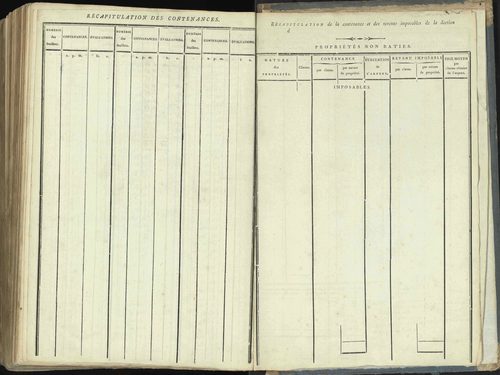 RÉCAPITULATION DES CONTENANCES.
NUMÉROS des feuillets. CONTENANCES. ÉVALUATIONS. NUMÉROS des feuillets. CONTENANCES. ÉVALUATIONS. NUMÉROS des feuillets. CONTENANCES. ÉVALUATIONS.
a. p. m. f. c. a. p. m. f. c. a. p. m. f. c.
RÉCAPITULATION de la contenance et des revenus imposables de la Section
d
PROPRIÉTÉS NON BATIES.
NATURE des PROPRIÉTÉS. Classes. CONTENANCE par classe. par nature de propriété. REVENU IMPOSABLE par classe. par nature de propriété.
IMPOSABLES